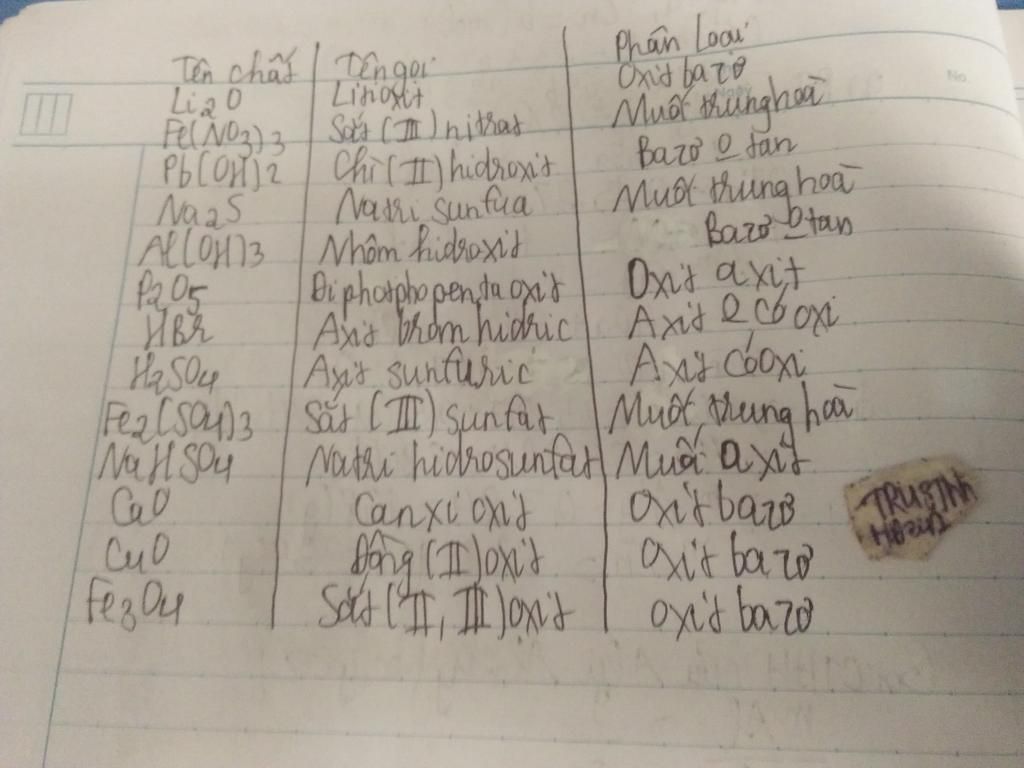 Tên chất Tên gọi Phân loại
Li2O Liti oxit Oxit bazơ
Fe(NO3)3 Sắt (III) nitrat Muối trung hoà
Pb(OH)2 Chì (II) hidroxit Bazơ o tan
Na2S Natri sunfua Muối trung hoà
Al(OH)3 Nhôm hidroxit Bazơ o tan
P2O5 Điphotpho pentaoxit Oxit axit
HBr Axit brom hidric Axit o có oxi
H2SO4 Axit sunfuric Axit có oxi
Fe2(SO4)3 Sắt (III) sunfat Muối trung hoà
NaHSO4 Natri hidrosunfat Muối axit
CaO Canxi oxit Oxit bazơ
CuO Đồng (II) oxit Oxit bazơ
Fe3O4 Sắt (II, III) oxit oxit bazơ
No.
Ngày